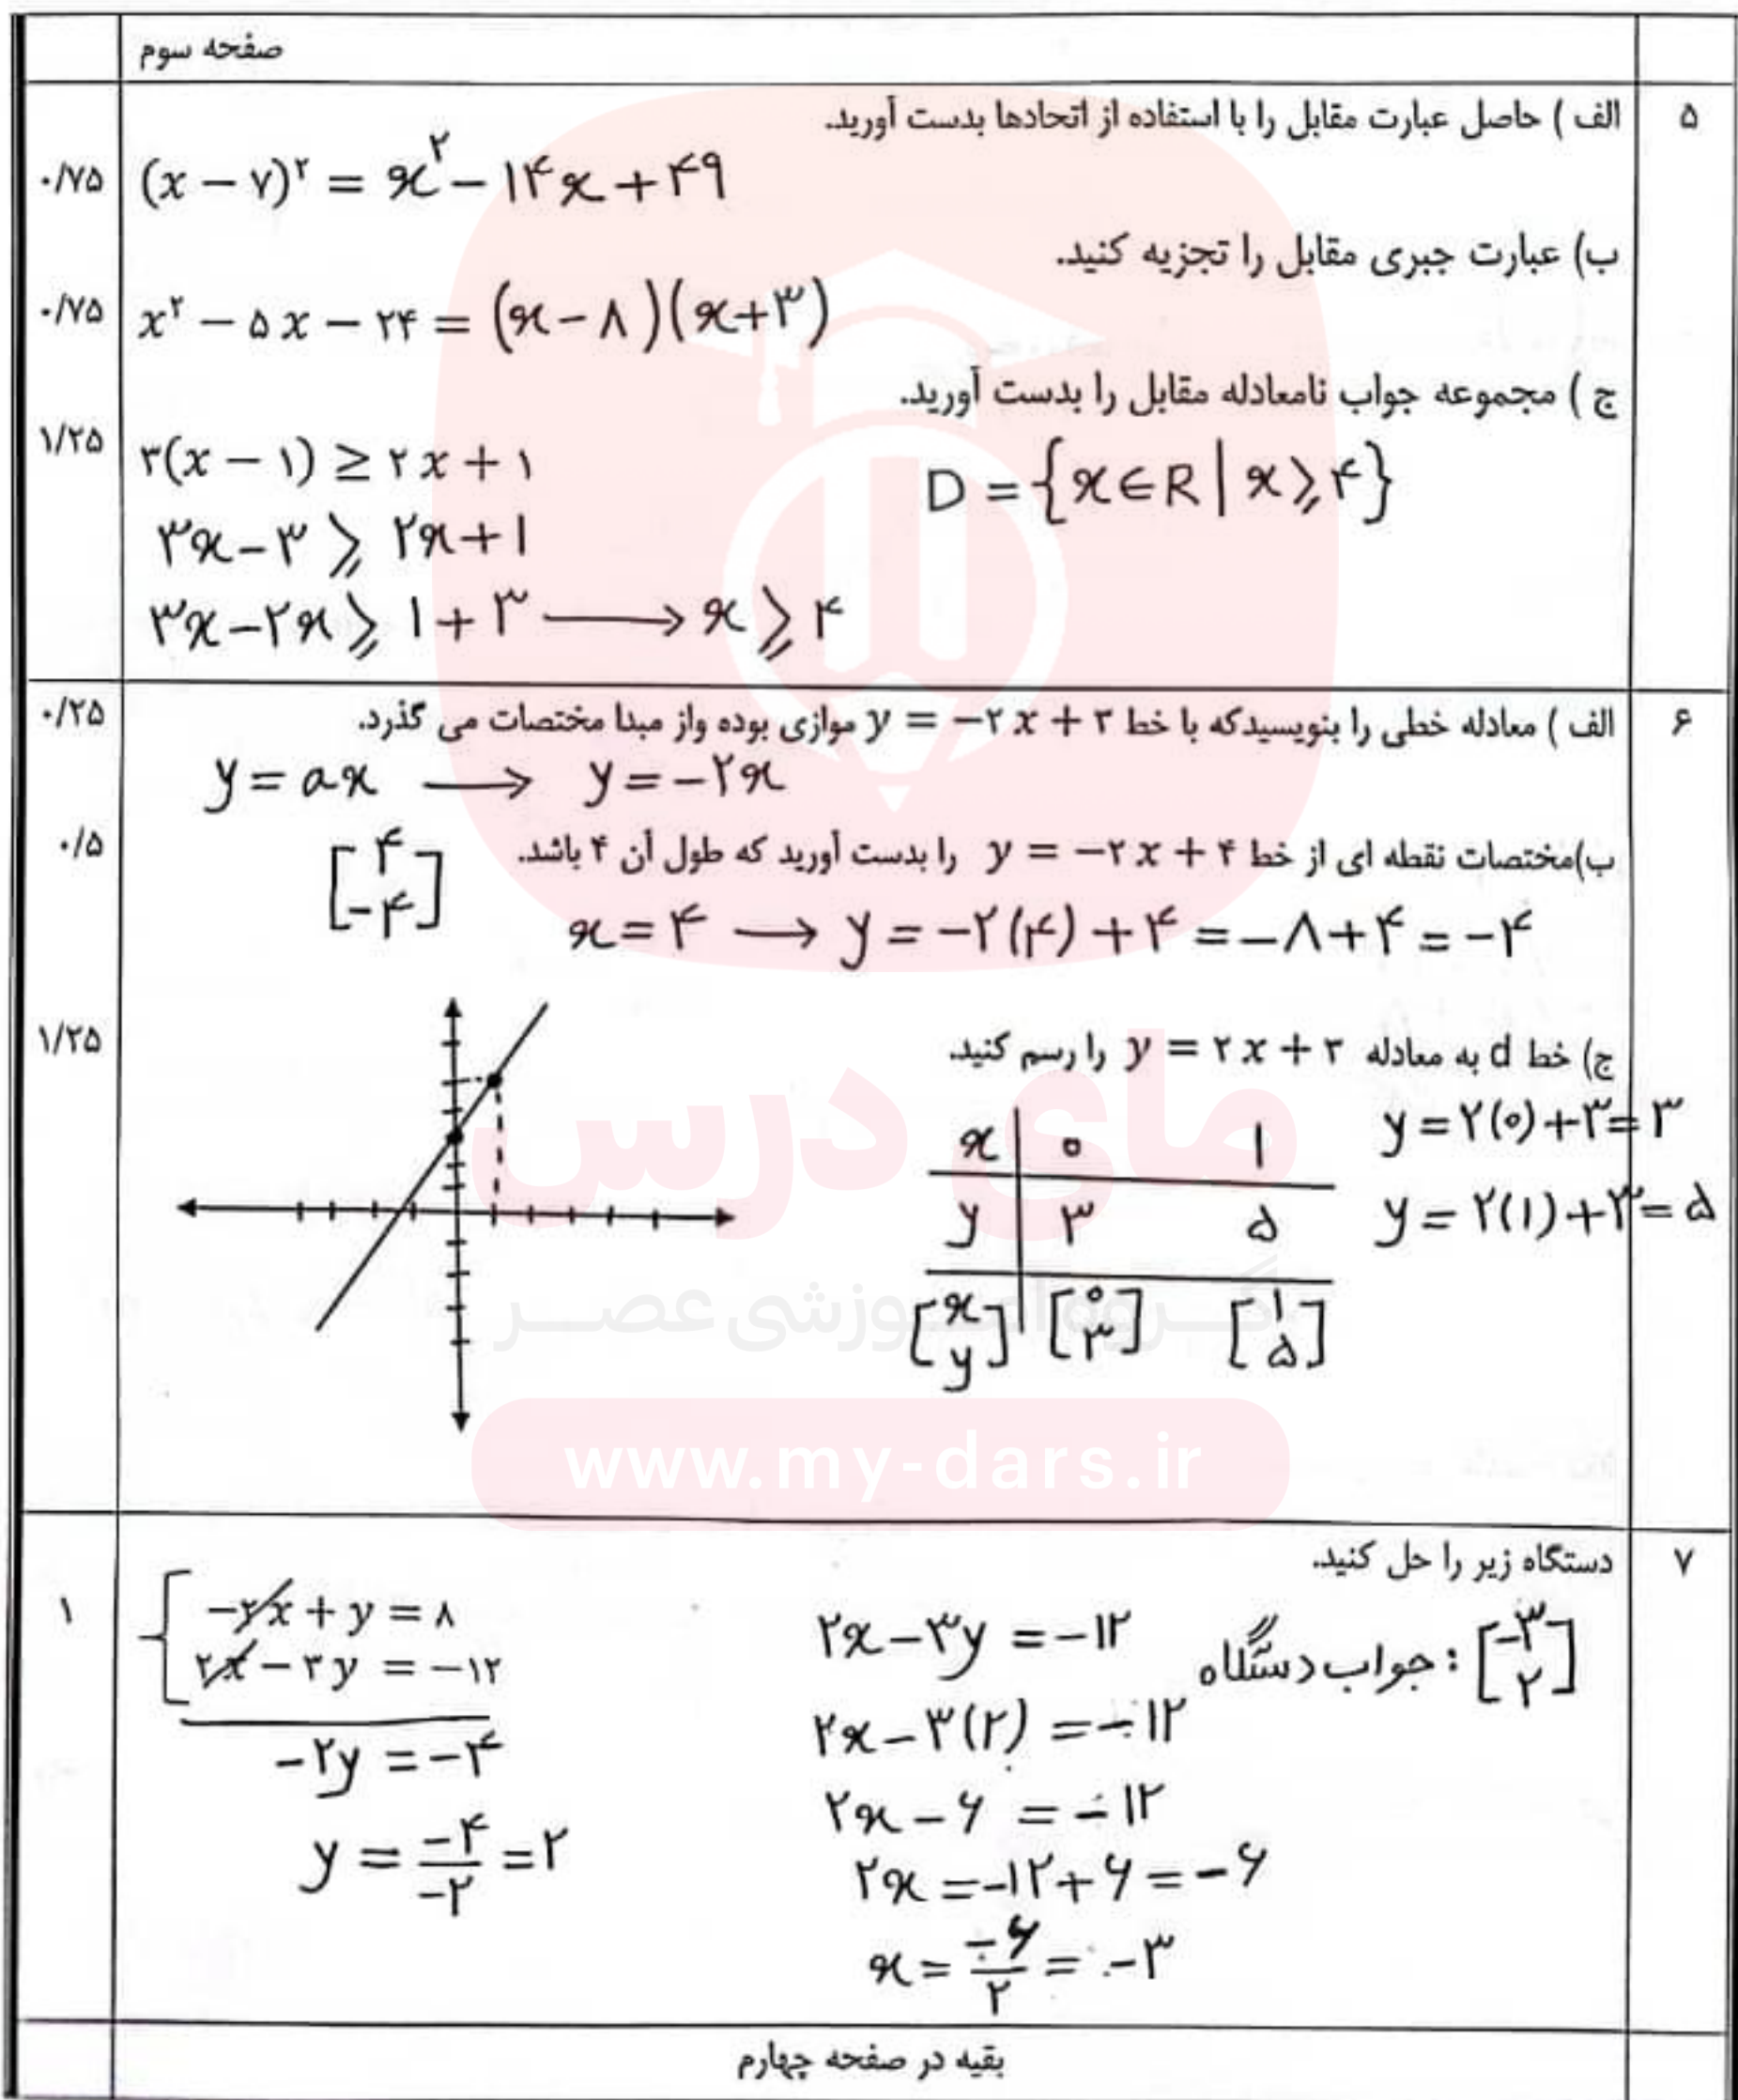 صفحه سوم
۵
الف ) حاصل عبارت مقابل را با استفاده از اتحادها بدست آورید.
۰/۷۵
(x − ۷)² = x² − ۱۴x + ۴۹
ب) عبارت جبری مقابل را تجزیه کنید.
۰/۷۵
x² − ۵x − ۲۴ = (x − ۸)(x + ۳)
ج ) مجموعه جواب نامعادله مقابل را بدست آورید.
۱/۲۵
۳(x − ۱) ≥ ۲x + ۱
D = {x ∈ R | x ≥ ۴}
۳x − ۳ ≥ ۲x + ۱
۳x − ۲x ≥ ۱ + ۳ → x ≥ ۴
۶
الف ) معادله خطی را بنویسیدکه با خط y = −۲x + ۳ موازی بوده واز مبدا مختصات می گذرد.
۰/۲۵
y = ax → y = −۲x
ب)مختصات نقطه ای از خط y = −۲x + ۴ را بدست آورید که طول آن ۴ باشد.
۰/۵
[۴ −۴]
x = ۴ → y = −۲(۴) + ۴ = −۸ + ۴ = −۴
ج) خط d به معادله y = ۲x + ۳ را رسم کنید.
۱/۲۵
y = ۲(۰) + ۳ = ۳
x ۰ ۱
y = ۲(۱) + ۳ = ۵
y ۳ ۵
[x y] [۰ ۳] [۱ ۵]
مای درس
گروه آموزشی عصر
www.my-dars.ir
۷
دستگاه زیر را حل کنید.
۱
−۲x + y = ۸
۲x − ۳y = −۱۲
−۲y = −۴
y = −۴/−۲ = ۲
۲x − ۳y = −۱۲
۲x − ۳(۲) = −۱۲
۲x − ۶ = −۱۲
۲x = −۱۲ + ۶ = −۶
x = −۶/۲ = −۳
جواب دستگاه : [−۳ ۲]
بقیه در صفحه چهارم